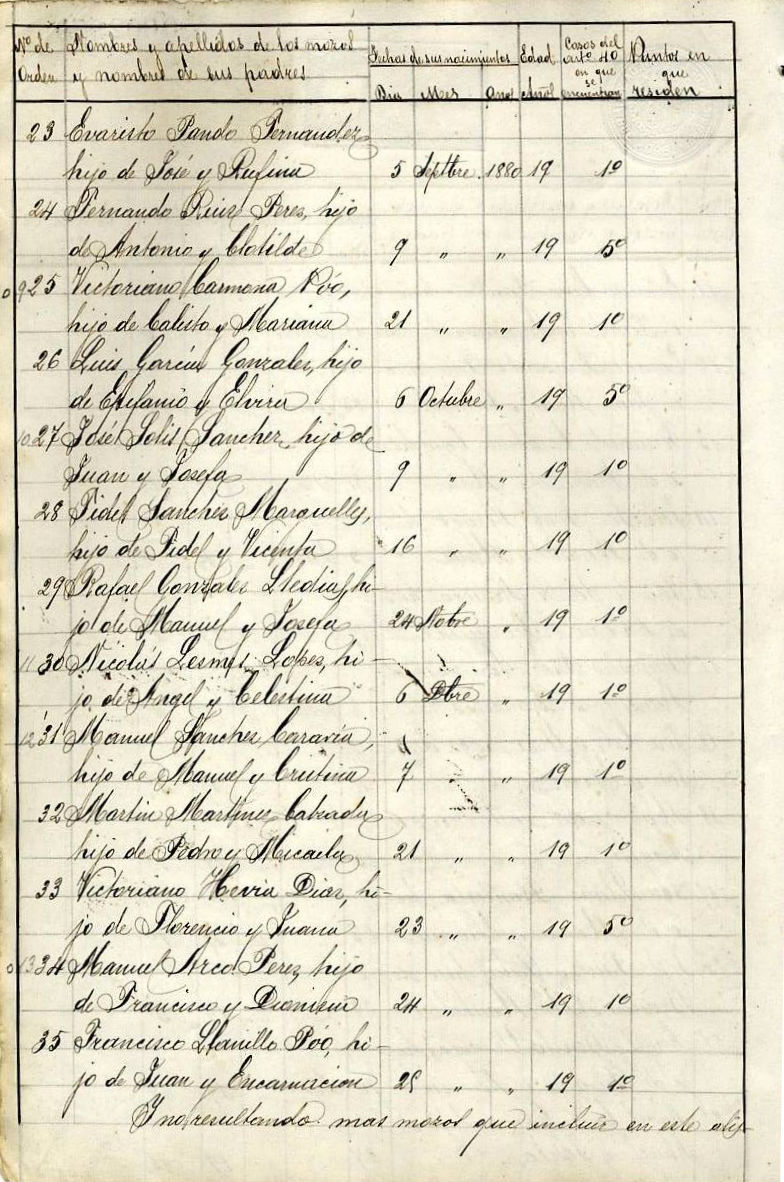 Nº de Nombres y apellidos de los mozos Fechas de sus nacimientos Edad Casos del Puntos en
Orden y nombres de sus padres Dia Mes Año Años artº 40 en que se encuentran que residen
23 Evaristo Pando Fernandez
hijo de José y Rufina 5 Septbre 1880 19 1º
24 Fernando Ruiz Perez, hijo
de Antonio y Clotilde 9 " " 19 5º
9 25 Victoriano Carmona Póo,
hijo de Calisto y Mariana 21 " " 19 1º
26 Luis García Gonzalez, hijo
de Estefanio y Elvira 6 Octubre " 19 5º
10 27 José Solis Sanchez, hijo de
Juan y Josefa 9 " " 19 1º
28 Fidel Sanchez Marquelly,
hijo de Fidel y Vicenta 16 " " 19 1º
29 Rafael Gonzalez Lledias, hi-
jo de Manuel y Josefa 24 Nobre " 19 1º
11 30 Nicolás Lesmes Lopez, hi-
jo de Angel y Celestina 6 Dbre " 19 1º
12 31 Manuel Sanchez Caravia,
hijo de Manuel y Cristina 7 " " 19 1º
32 Martin Martinez Cabrada
hijo de Pedro y Micaela 21 " " 19 1º
33 Victoriano Hevia Diaz, hi-
jo de Florencio y Juana 23 " " 19 5º
13 34 Manuel Arco Perez, hijo
de Francisco y Dionisia 24 " " 19 1º
35 Francisco Llanillo Póo, hi-
jo de Juan y Encarnacion 25 " " 19 1º
Y no resultando mas mozos que incluir en este alis-